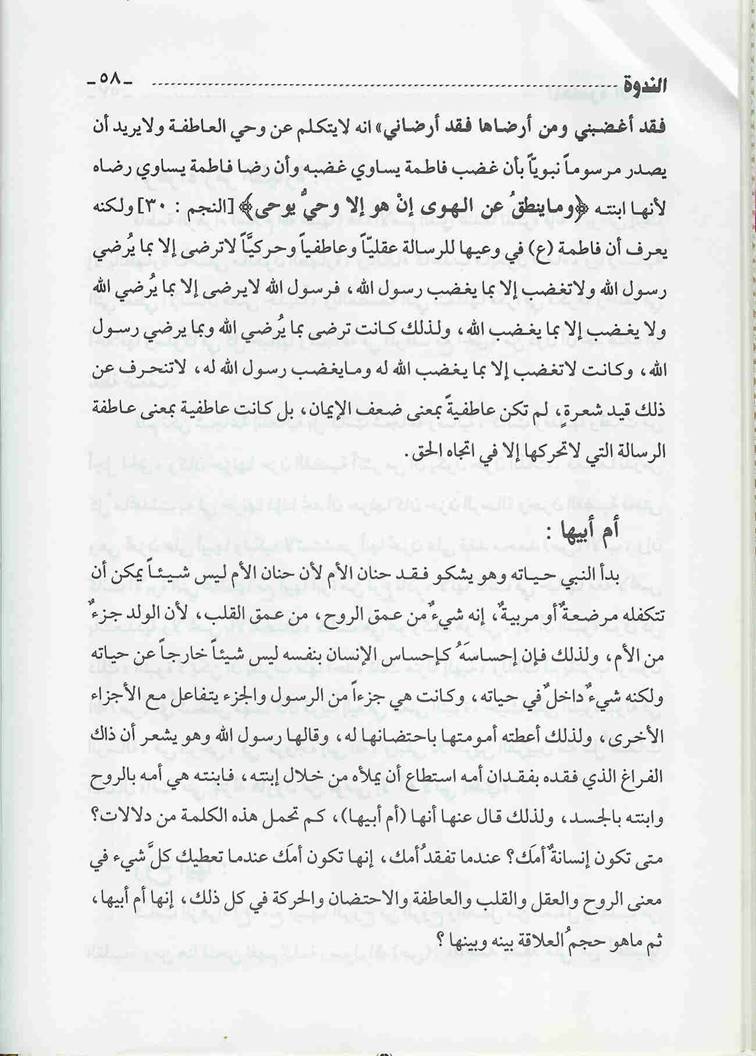 الندوة ........................................................................ ـ٥٨ـ
فقد أغضبني ومن أرضاها فقد أرضاني» انه لايتكلم عن وحي العاطفة ولايريد أن
يصدر مرسوماً نبوياً بأن غضب فاطمة يساوي غضبه وأن رضا فاطمة يساوي رضاه
لأنها ابنته ﴿وماينطقُ عن الهوى إنْ هو إلا وحيٌ يوحى﴾ [النجم : ٣٠] ولكنه
يعرف أن فاطمة (ع) في وعيها للرسالة عقليّاً وعاطفياً وحركيّاً لاترضى إلا بما يُرضي
رسول الله ولاتغضب إلا بما يغضب رسول الله، فرسول الله لايرضى إلا بما يُرضي الله
ولا يغضب إلا بما يغضب الله، ولذلك كانت ترضى بما يُرضي الله وبما يرضي رسول
الله، وكانت لاتغضب إلا بما يغضب الله له ومايغضب رسول الله له، لاتنحرف عن
ذلك قيد شعرةٍ، لم تكن عاطفيةً بمعنى ضعف الإيمان، بل كانت عاطفية بمعنى عاطفة
الرسالة التي لاتحركها إلا في اتجاه الحق.
أم أبيها :
بدأ النبي حياته وهو يشكو فقد حنان الأم لأن حنان الأم ليس شيئاً يمكن أن
تتكفله مرضعةٌ أو مربيةٌ، إنه شيءٌ من عمق الروح، من عمق القلب، لأن الولد جزءٌ
من الأم، ولذلك فإن إحساسَهُ كإحساس الإنسان بنفسه ليس شيئاً خارجاً عن حياته
ولكنه شيءٌ داخلٌ في حياته، وكانت هي جزءاً من الرسول والجزء يتفاعل مع الأجزاء
الأخرى، ولذلك أعطته أمومتها باحتضانها له، وقالها رسول الله وهو يشعر أن ذاك
الفراغ الذي فقده بفقدان أمه استطاع أن يملأه من خلال إبنته، فابنته هي أمه بالروح
وابنته بالجسد، ولذلك قال عنها أنها (أم أبيها)، كم تحمل هذه الكلمة من دلالات؟
متى تكون إنسانةٌ أمَك؟ عندما تفقدُ أمك، إنها تكون أمَك عندما تعطيك كلَّ شيء في
معنى الروح والعقل والقلب والعاطفة والاحتضان والحركة في كل ذلك، إنها أم أبيها،
ثم ماهو حجمُ العلاقة بينه وبينها ؟